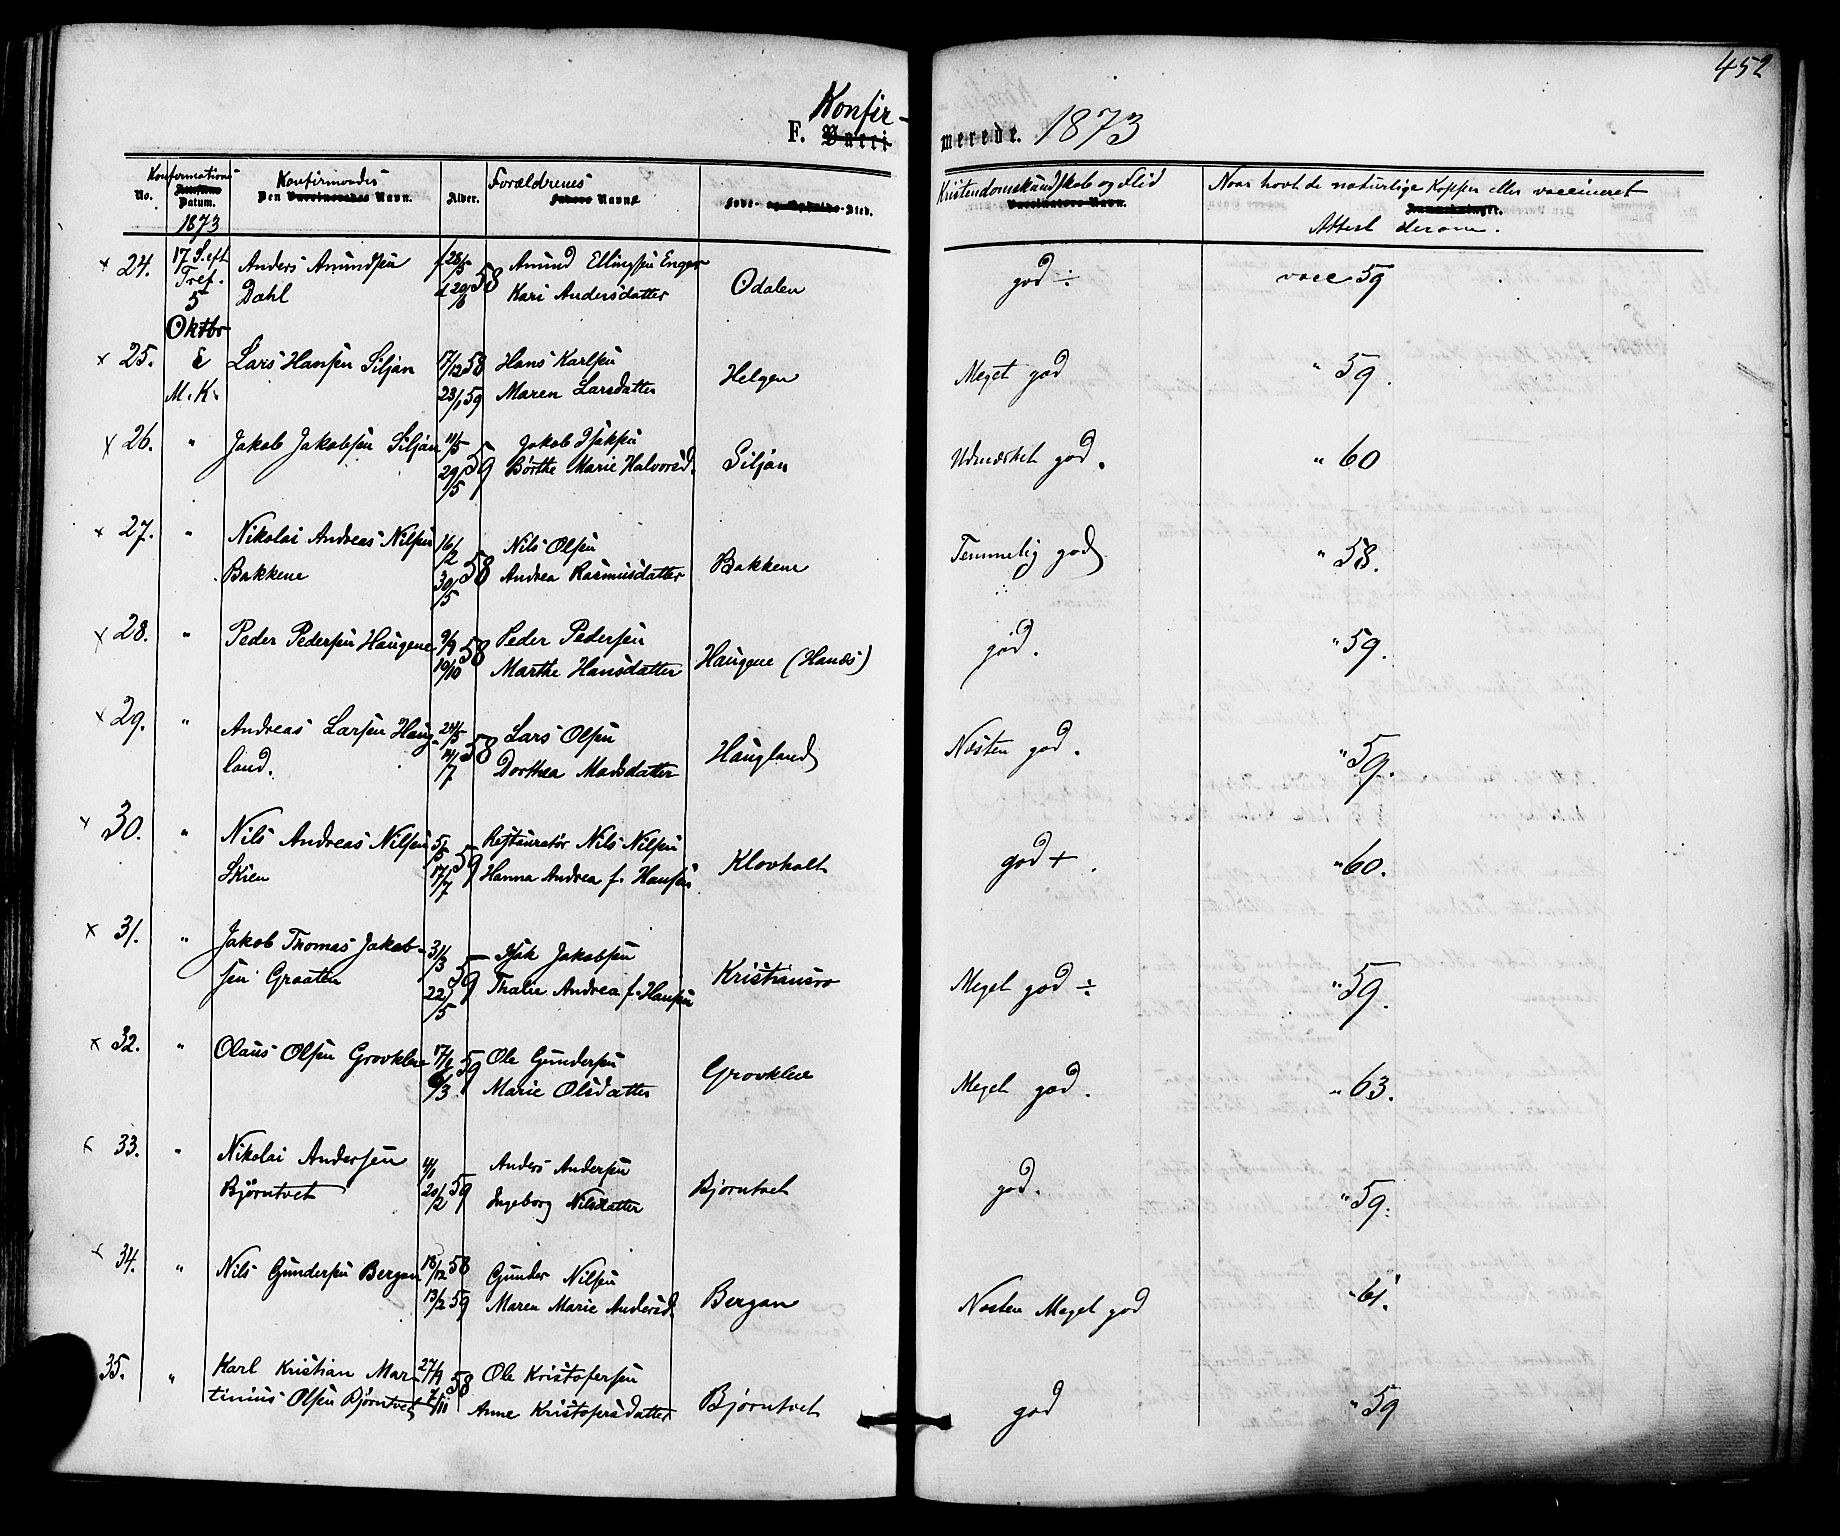 452
Konfir-
F. Vacci merede. 1873
No.
Konfirmations
Datum.
1873
Konfirmandes
Den Vaccineredes Navn.
Alder.
Forældrenes
Navne
Føde- og Opholds-Sted.
Kristendomskundskab og Flid
Vaccinators Navn.
Naar havt de naturlige Kopper eller vaccineret
Anmærkninger.
Attest derom.
x 24. 17 S. eft Anders Amundsen f 28/5 58 Amund Ellingsen Enger god ÷ vacc 59
Tref. Dahl d 20/6 Kari Andersdatter Odalen
5
Oktbr
x 25. & Lars Hansen Siljan 17/12 58 Hans Karlsen Helgen Meget god " 59.
M. K. 23/1 59 Maren Larsdatter
x 26. " Jakob Jakobsen Siljan 11/5 59 Jakob Isaksen Siljan Udmærket god. " 60
29/5 Børthe Marie Halvorsd.
x 27. " Nikolai Andreas Nilsen 16/2 58 Nils Olsen Bakkene Temmelig god " 58.
Bakkene 30/5 Andrea Rasmusdatter
x 28. " Peder Pedersen Haugene 9/9 58 Peder Pedersen Haugene (Hanas) god. " 59.
19/10 Marthe Hansdatter
x 29. " Andreas Larsen Haug- 24/5 58 Lars Olsen Haugland Næsten god. " 59.
land. 14/7 Dorthea Madsdatter
x 30. " Nils Andreas Nilsen 5/5 59 Restauratør Nils Nilsen Klovholt god + " 60.
Skien 17/7 Hanna Andrea f. Hansen
x 31. " Jakob Thomas Jakob- 31/3 59 Isak Jakobsen Kristiansro Meget god ÷ " 59.
sen Graaten 22/5 Thalie Andrea f. Hansen
x 32. " Olaus Olsen Grovkleve 17/1 59 Ole Gundersen Grovkleve Meget god. " 63.
6/3 Marie Olsdatter
x 33. " Nikolai Andersen 4/1 59 Anders Andersen Bjørntvet god. " 59.
Bjørntvet 20/2 Ingeborg Nilsdatter
x 34. " Nils Gundersen Bergan 18/12 58 Gunder Nilsen Bergan Næsten Meget god " 61.
13/2 59 Maren Marie Andersd.
35. " Karl Kristian Mar- 27/9 58 Ole Kristofersen Bjørntvet god " 59
tinius Olsen Bjørntvet 7/11 Anne Kristofersdatter